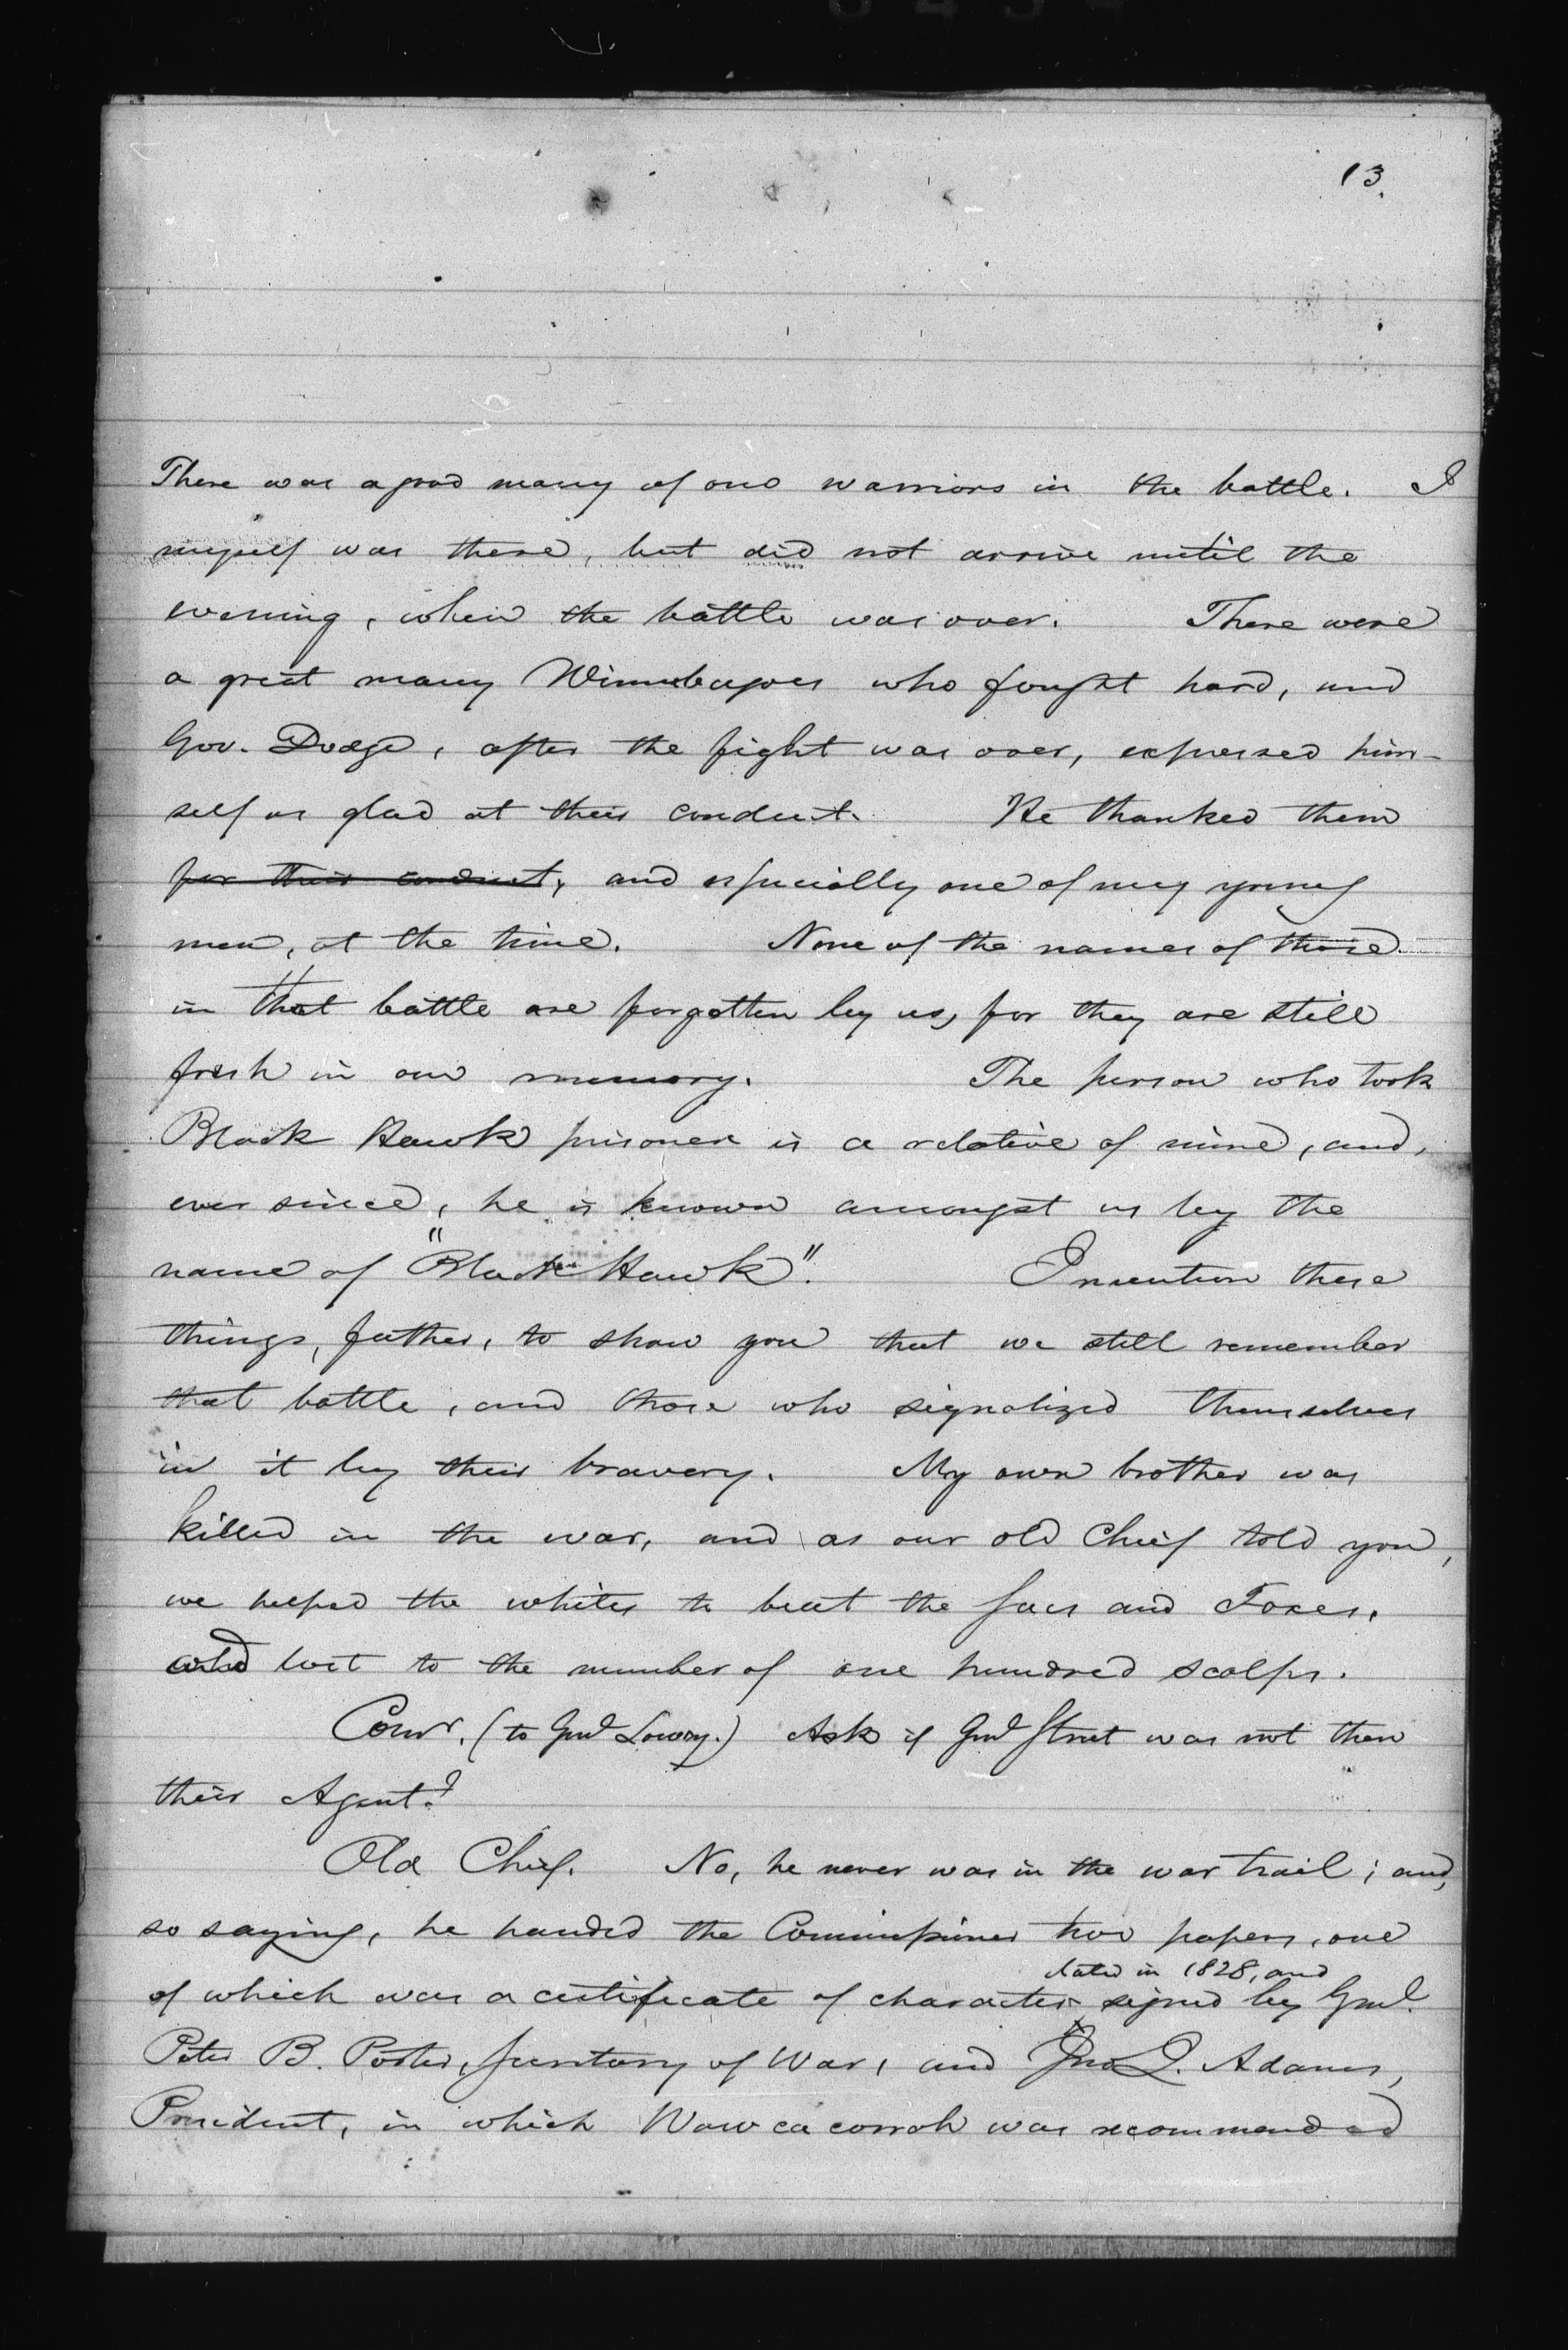 13.
There was a good many of our warriors in the battle. I
myself was there, but did not arrive until the
evening, when the battle was over. There were
a great many Winnebagoes who fought hard, and
Gov. Dodge, after the fight was over, expressed him-
self as glad at their conduct. He thanked them
for their conduct, and especially one of my young
men, at the time. None of the names of those
in that battle are forgotten by us, for they are still
fresh in our memory. The person who took
Black Hawk prisoner is a relative of mine, and,
ever since, he is known amongst us by the
name of "Black Hawk". I mention these
things, father, to show you that we still remember
that battle, and those who signalized themselves
in it by their bravery. My own brother was
killed in the war, and as our old Chief told you,
we helped the whites to beat the Sacs and Foxes,
who lost to the number of one hundred scalps.
Comr. (to Genl Lowry.) Ask if Genl Street was not then
their Agent?
Old Chief. No, he never was in the war trail; and,
so saying, he handed the Commissioner two papers, one
dated in 1828, and
of which was a certificate of character signed by Genl.
Peter B. Porter, Secretary of War, and Jno Q. Adams,
President, in which Wawcacorrah was recommended